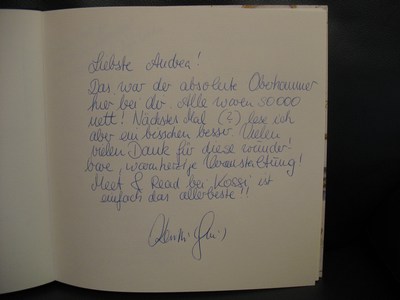 Liebste Andrea!
Das war der absolute Obohammer
hier bei dir. Alle waren SO OOO
nett! Nächstes Mal (?) lese ich
aber ein bisschen besser. Vielen,
vielen Dank für diese wunder-
bare, warmherzige Veranstaltung!
Meet & Read bei Kossi ist
einfach das allerbeste!!